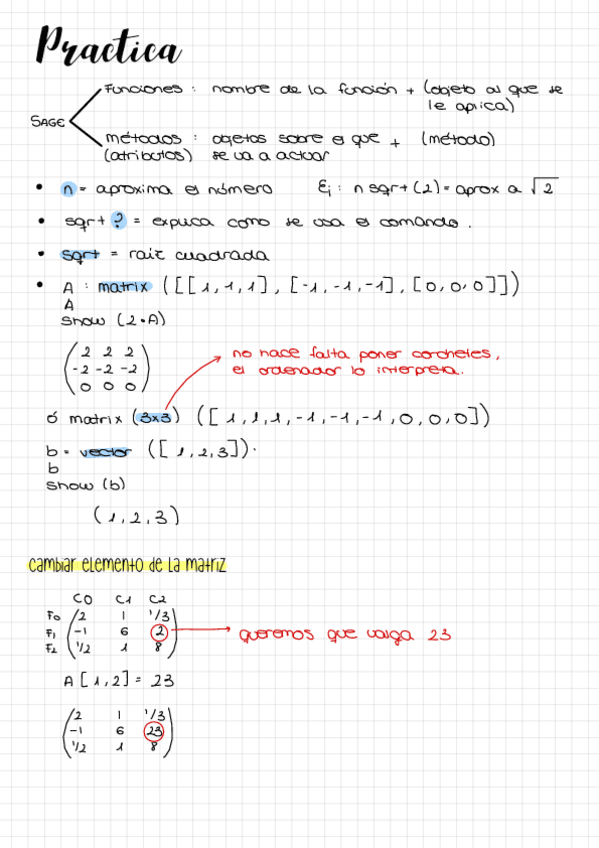 Practica
Funciones : nombre de la función + (objeto al que se
le aplica)
SAGE
métodos : objetos sobre el que + (método)
(atributos) se va a actuar
• n = aproxima el número Ej: n sqrt (2) = aprox a √2
• sqrt ? = explica como se usa el comando.
• sqrt = raíz cuadrada
• A : matrix ([[1,1,1], [-1,-1,-1], [0,0,0]])
A
show (2·A)
2 2 2
-2 -2 -2
0 0 0
no hace falta poner corchetes,
el ordenador lo interpreta.
ó matrix (3x3) ([1,1,1,-1,-1,-1,0,0,0])
b = vector ([1,2,3]).
b
show (b)
(1,2,3)
cambiar elemento de la matriz
C0 C1 C2
F0 2 1 1/3
F1 -1 6 2 queremos que valga 23
F2 1/2 1 8
A [1,2] = 23
2 1 1/3
-1 6 23
1/2 1 8